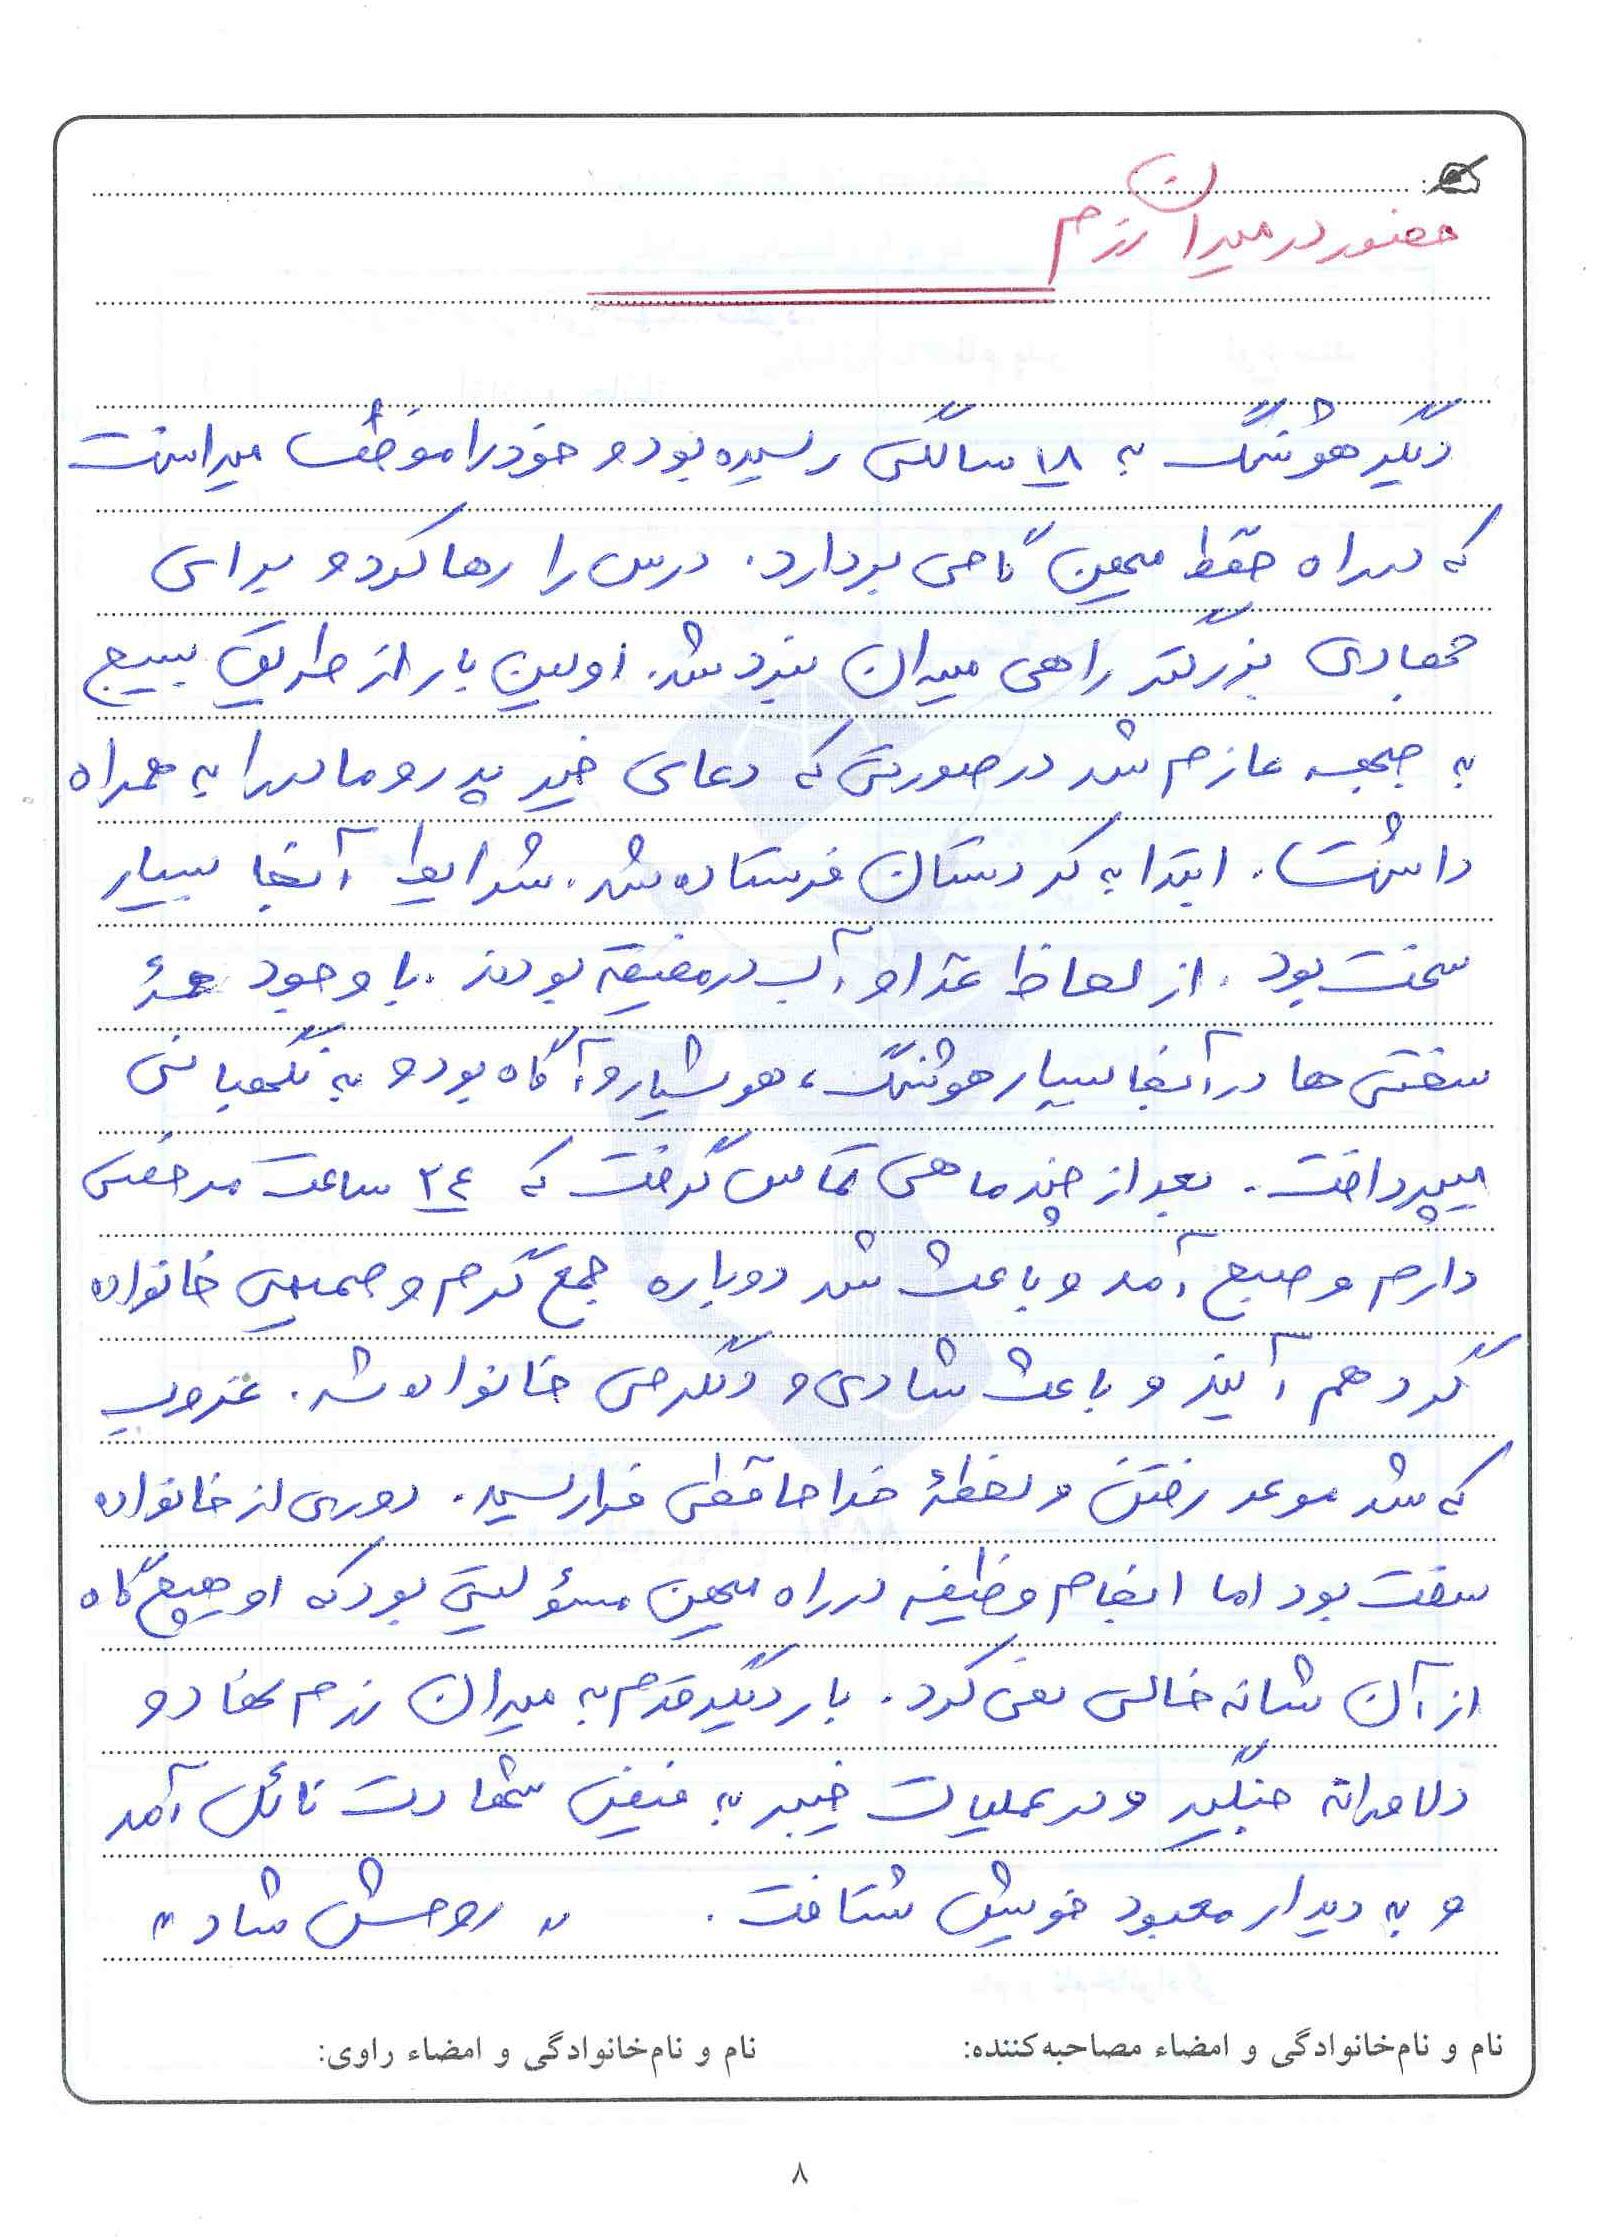 حضور در میدان رزم
دیگر هوشنگ به ۱۸ سالگی رسیده بود و خود را موظف میدانست
که در راه حفظ میهن گامی بردارد. درس را رها کرد و برای
جهادی بزرگتر راهی میدان نبرد شد. اولین بار از طریق بسیج
به جبهه عازم شد در صورتی که دعای خیر پدر و مادر را به همراه
داشت. ابتدا به کردستان فرستاده شد. شرایط آنجا بسیار
سخت بود. از لحاظ غذا و آب در مضیقه بودند. با وجود همۀ
سختی ها در آنجا بسیار هوشنگ، هوشیار و آگاه بود و به نگهبانی
میپرداخت. بعد از چند ماهی تماس گرفت که ۲۴ ساعت مرخصی
دارم و صبح آمد و باعث شد دوباره جمع گرم و صمیمی خانواده
گرد هم آیند و باعث شادی و دلگرمی خانواده شد. غروب
که شد موعد رفتن و لحظۀ خداحافظی فرا رسید. دوری از خانواده
سخت بود اما انجام وظیفه در راه میهن مسؤلیتی بود که او هیچ گاه
از آن شانه خالی نمی کرد. بار دیگر قدم به میدان رزم نهاد و
دلاورانه جنگید و در عملیات خیبر به فیض شهادت نائل آمد
و به دیدار معبود خویش شتافت. " روحش شاد "
نام و نام‌خانوادگی و امضاء مصاحبه‌کننده: نام و نام‌خانوادگی و امضاء راوی:
۸